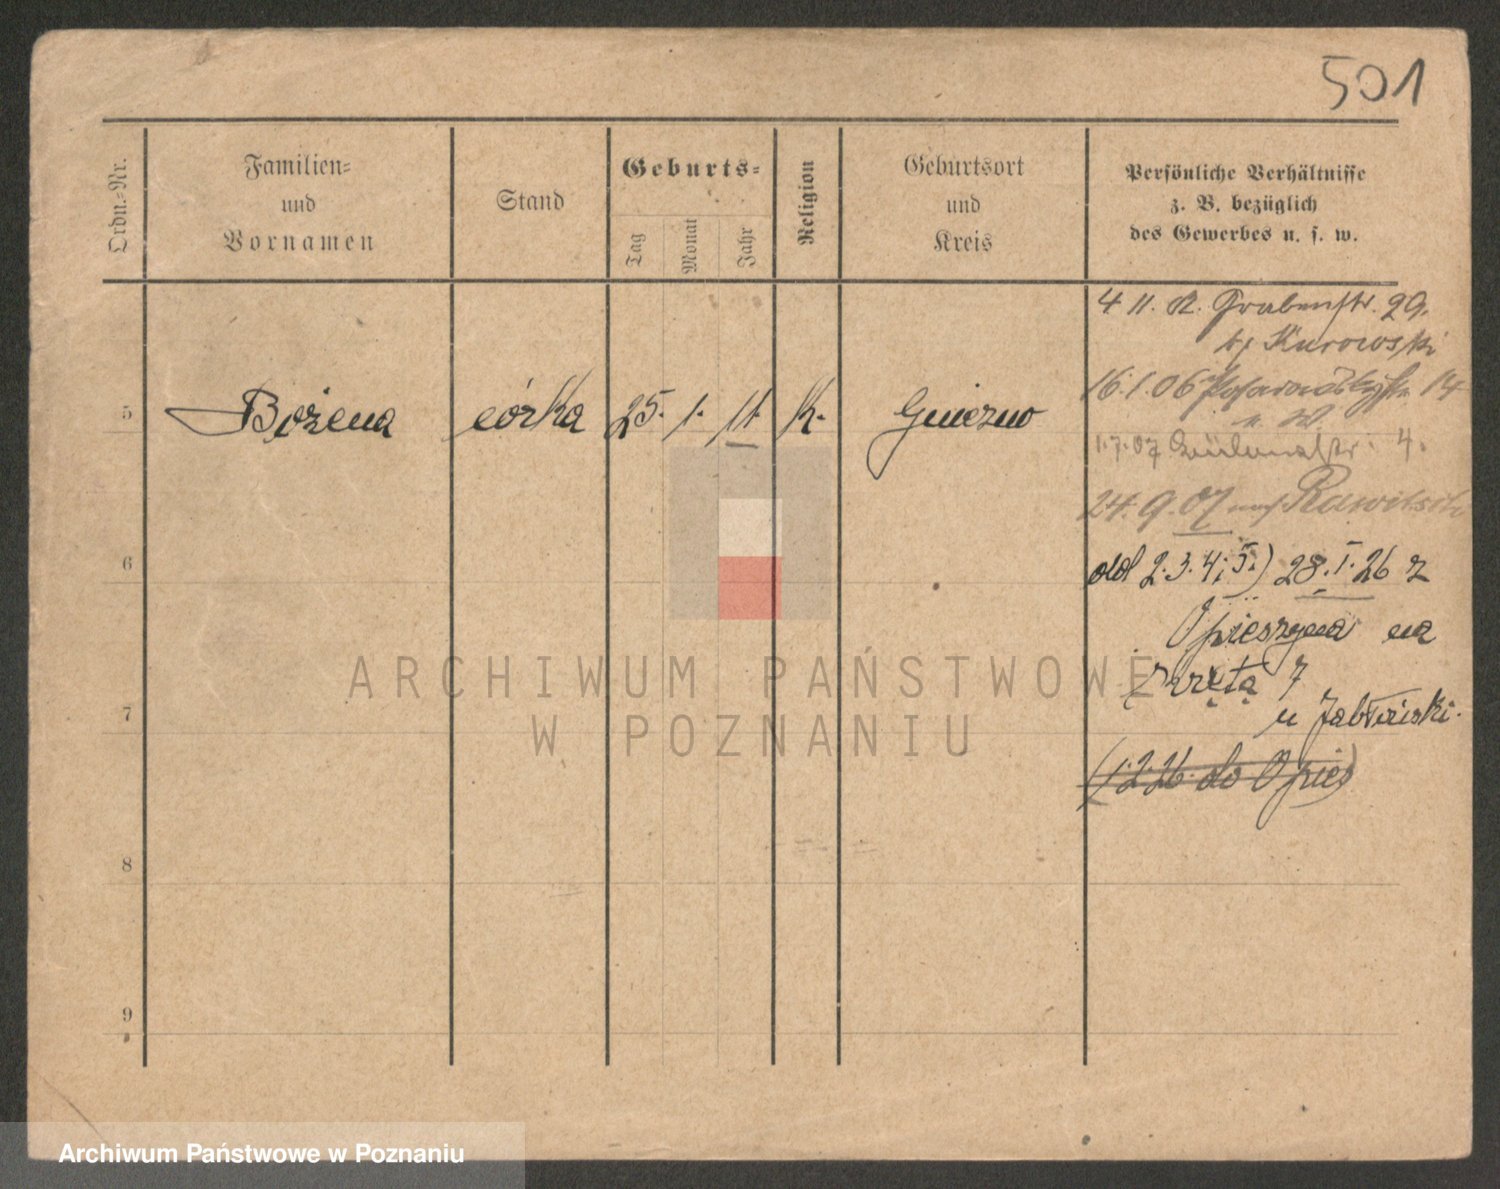 501
Ordn.-Nr.
Familien-
und
Vornamen
Stand
Geburts-
Tag
Monat
Jahr
Religion
Geburtsort
und
Kreis
Persönliche Verhältnisse
z. B. bezüglich
des Gewerbes u. s. w.
4 11. Grabenstr. 29.
Kurowski
5 Bożena córka 25. 1. 11. K. Gniezno
16.1.06 14
1.7.07 4.
24.9.07 nach Rawitsch
6
od 2.3.4,5.) 28.I.26 z
Opieszyna na
Krętą 7
7
u Jabłoński.
(1.2.26. do Opies)
8
9
ARCHIWUM PAŃSTWOWE
W POZNANIU
Archiwum Państwowe w Poznaniu